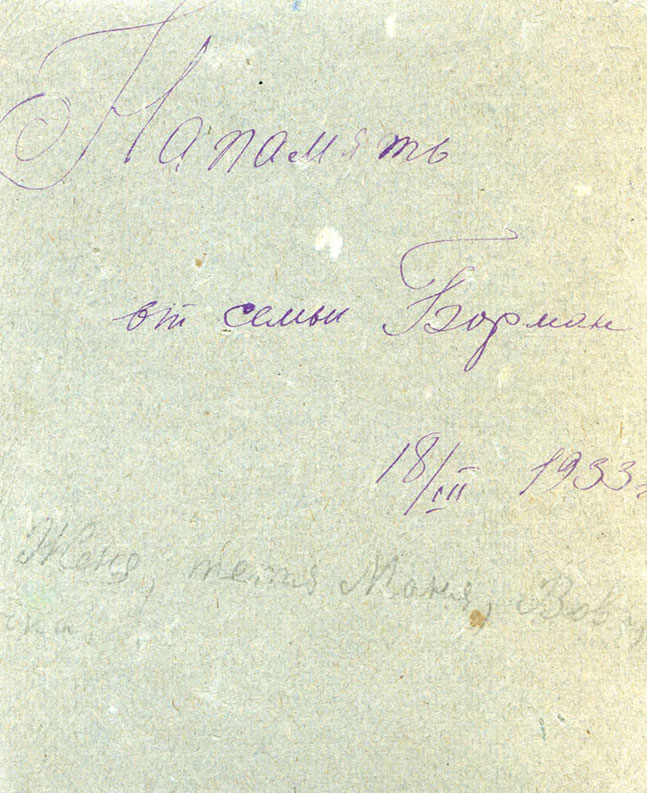 На память
от семьи Борман
18/III 1933г
Женя, тетя Маня, Вов